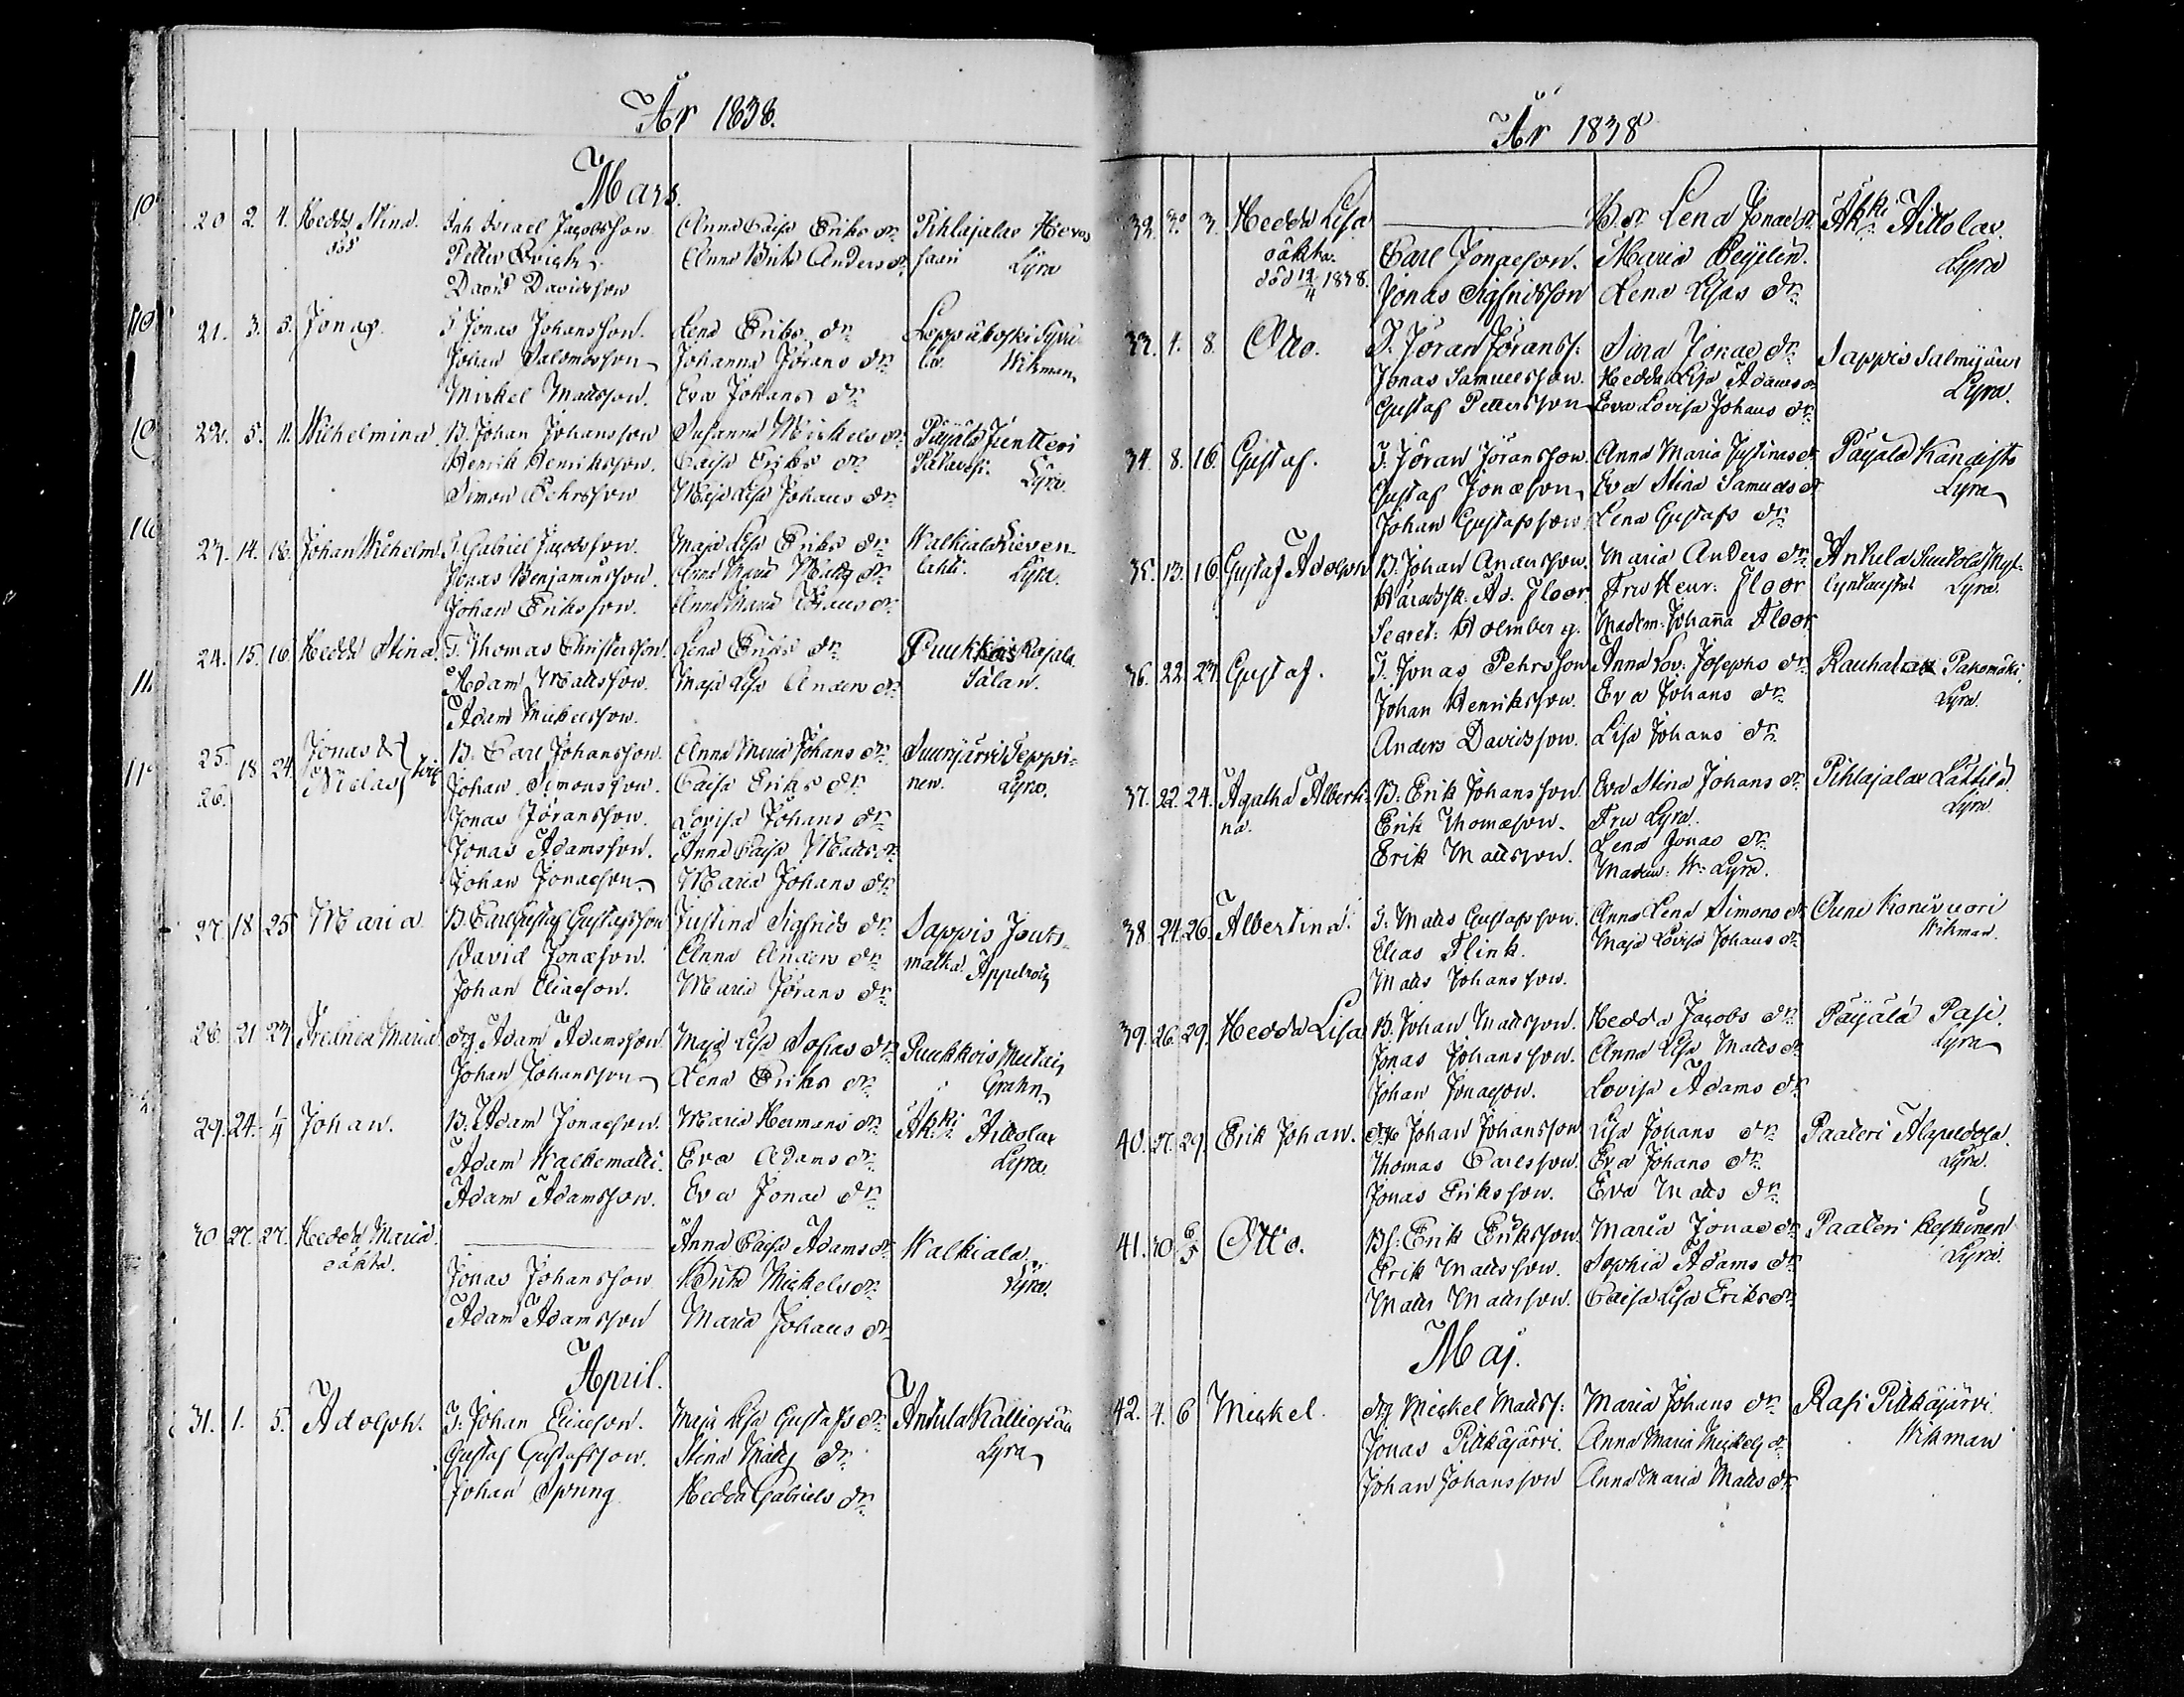 År 1838.
Mars.
20. 2. 4. Hedda Stina. Inh Israel Jacobsson Anna Caisa Eriks dr. Pihlajalax
död Petter Anna Brita Anders dr. saari Lyra
David Davidsson
21. 3. 5. Jonas. T. Jonas Johansson. Lena Eriks dr. Leppäkoski
Johan Salomonsson Johanna Jörans dr. Wikman
Mickel Mattsson. Eva Johans dr.
22. 5. 11. Wilhelmina B. Johan Johansson Susanna Mickels dr. Päyälä Jentteri
Henrik Henriksson. Caisa Eriks dr. Lyra.
Simon Pehrsson Maja Lisa Johans dr.
23. 14. 16. Johan Wilhelm T. Gabriel Jacobsson. Maja Lisa Eriks dr. Walkiala Lieven-
Jonas Benjaminsson. Anna Maria Matts dr. lahti. Lyra.
Johan Eriksson. Anna Maria Johans dr.
24. 15. 16. Hedda Stina. T. Thomas Christersson. Lena Eriks dr. Ruokkois Rajala
Adam Mattsson. Maja Lisa Anders dr. Salan.
Adam Mickelsson.
25. 18 24. Jonas & B. Carl Johansson. Anna Maria Johans dr. Suurijärvi Seppi=
26. Niclas Johan Simonsson. Caisa Eriks dr. nen. Lyra.
Jonas Jöransson. Lovisa Johans dr.
Jonas Adamsson. Anna Caisa Matts dr.
Johan Jonasson. Maria Johans dr.
27. 18 25 Maria. B. Carl Gustaf Gustafsson Justina Sigfrids dr. Sappis Jouts-
David Jonasson. Anna Anders dr. matka. Appelroth
Johan Eliasson. Maria Jörans dr.
28. 21 23 Fredrica Maria drg. Adam Adamsson. Maja Lisa dr. Ruokkois
Johan Johansson Lena Eriks dr. Grahn
29. 24. 1/4 Johan. B. Adam Jonasson. Maria Hermans dr. Akki Aittolax
Adam Walkematti. Eva Adams dr. Lyra.
Adam Adamsson. Eva Jonas dr.
30 27. 27. Hedda Maria. Anna Caisa Adams dr. Walkiala
oäkta. Jonas Johansson Brita Mickels dr. Lyra.
Adam Adamsson Maria Johans dr.
April.
31. 1. 5. Adolph. T. Johan Eliasson. Maja Lisa Gustafs dr. Anttila Kalliopää
Gustaf Gustafsson. Stina Matts dr. Lyra
Johan Spring Hedda Gabriels dr.
År 1838
32. 3. 3. Hedda Lisa B. dr. Lena Jonas dr. Akki Aittolax.
oäkta. Carl Jonasson. Maria Lyra
död 12/4 1838. Jonas Sigfridsson Lena Lisas dr.
33. 4. 8. Otto. T. Jöran Jöranss: Sara Jonas dr. Sappis Salmijärvi
Jonas Samuelsson. Hedda Lisa Adams dr Lyra.
Gustaf Pettersson Eva Lovisa Johans dr.
34. 8. 16. Gustaf. T. Jöran Jöransson. Anna Maria Justinas dr Päyälä Kandisto
Gustaf Jonasson Eva Stina Samuels dr Lyra
Johan Gustafsson Lena Gustafs dr.
35. 13. 16. Gustaf Adolph B. Johan Andersson. Maria Anders dr. Anttila
Häradsk. Ad. Floor. Fru Henr: Floor Lyra.
Secret: Holmberg. Madem: Johanna Floor
36. 22. 23. Gustaf. T. Jonas Pehrsson Anna Lov: Josephs dr. Rauhalax Pakomäki
Johan Henriksson. Eva Johans dr. Lyra.
Anders Davidsson. Lisa Johans dr.
37. 22. 24. Agatha Alberti- B. Erik Johansson Eva Stina Johans dr. Pihlajalax Lättilä
na. Erik Thomasson. Fru Lyra. Lyra.
Erik Mattsson. Lena Jonas dr.
Madem: W: Lyra.
38. 24. 26. Albertina. T. Matts Gustafsson. Anna Lena Simons dr
Elias Flink. Maja Lovisa Johans dr Wikman.
Matts Johansson.
39. 26. 29. Hedda Lisa B. Johan Mattsson. Hedda Jacobs dr. Päyälä Pasi.
Jonas Johansson. Anna Lisa Matts dr Lyra
Johan Jonasson. Lovisa Adams dr.
40. 27. 29. Erik Johan. Johan Johansson Lisa Johans dr. Paaleri
Thomas Carlsson. Eva Johans dr. Lyra.
Jonas Eriksson. Eva Matts dr.
41. 30. 6/5 Otto. Bs: Erik Eriksson. Maria Jonas dr. Paaleri Keskinen
Erik Mattsson. Sophia Adams dr. Lyra.
Matts Mattsson. Caisa Lisa Eriks dr.
Maj.
42. 4. 6 Mickel. drg Mickel Mattss: Maria Johans dr. Rasi Pitkäjärvi
Jonas Pitkäjärvi. Anna Maria Mickels dr. Wikman
Johan Johansson Anna Maria Matts dr.